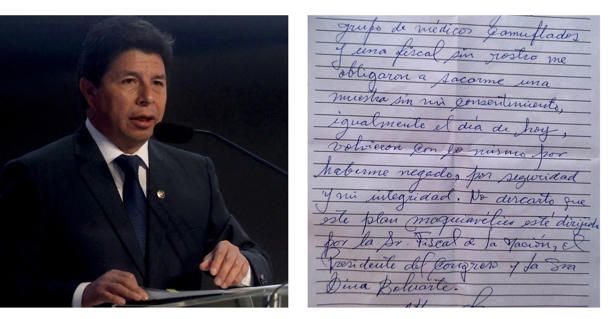 grupo de médicos camuflados
y una fiscal sin rostro me
obligaron a sacarme una
muestra sin mi consentimiento,
igualmente el día de hoy,
volvieron con lo mismo por
haberme negado, por seguridad
y mi integridad. No descarto que
este plan maquiavélico esté dirigido
por la Sr. Fiscal de la Nación, el
Presidente del Congreso y la Sra
Dina Boluarte.